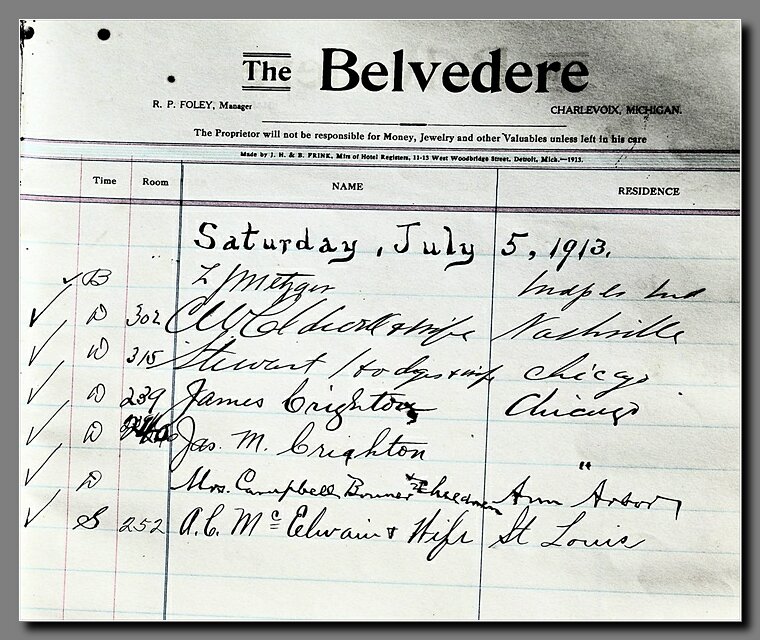 The Belvedere
R. P. FOLEY, Manager CHARLEVOIX, MICHIGAN.
The Proprietor will not be responsible for Money, Jewelry and other Valuables unless left in his care
Made by J. H. & B. FRINK, Mfrs of Hotel Registers, 11-13 West Woodbridge Street, Detroit, Mich.—1913.
Time Room NAME RESIDENCE
Saturday, July 5, 1913.
B L Metzger Indpls Ind
D 302 & wife Nashville
D 315 Stewart Hodges & wife Chicago
D 239 James Crighton Chicago
D Jas. M. Crighton "
D Mrs. Campbell Bonner & 2 Children Ann Arbor
S 252 A.C. McElwain & Wife St Louis